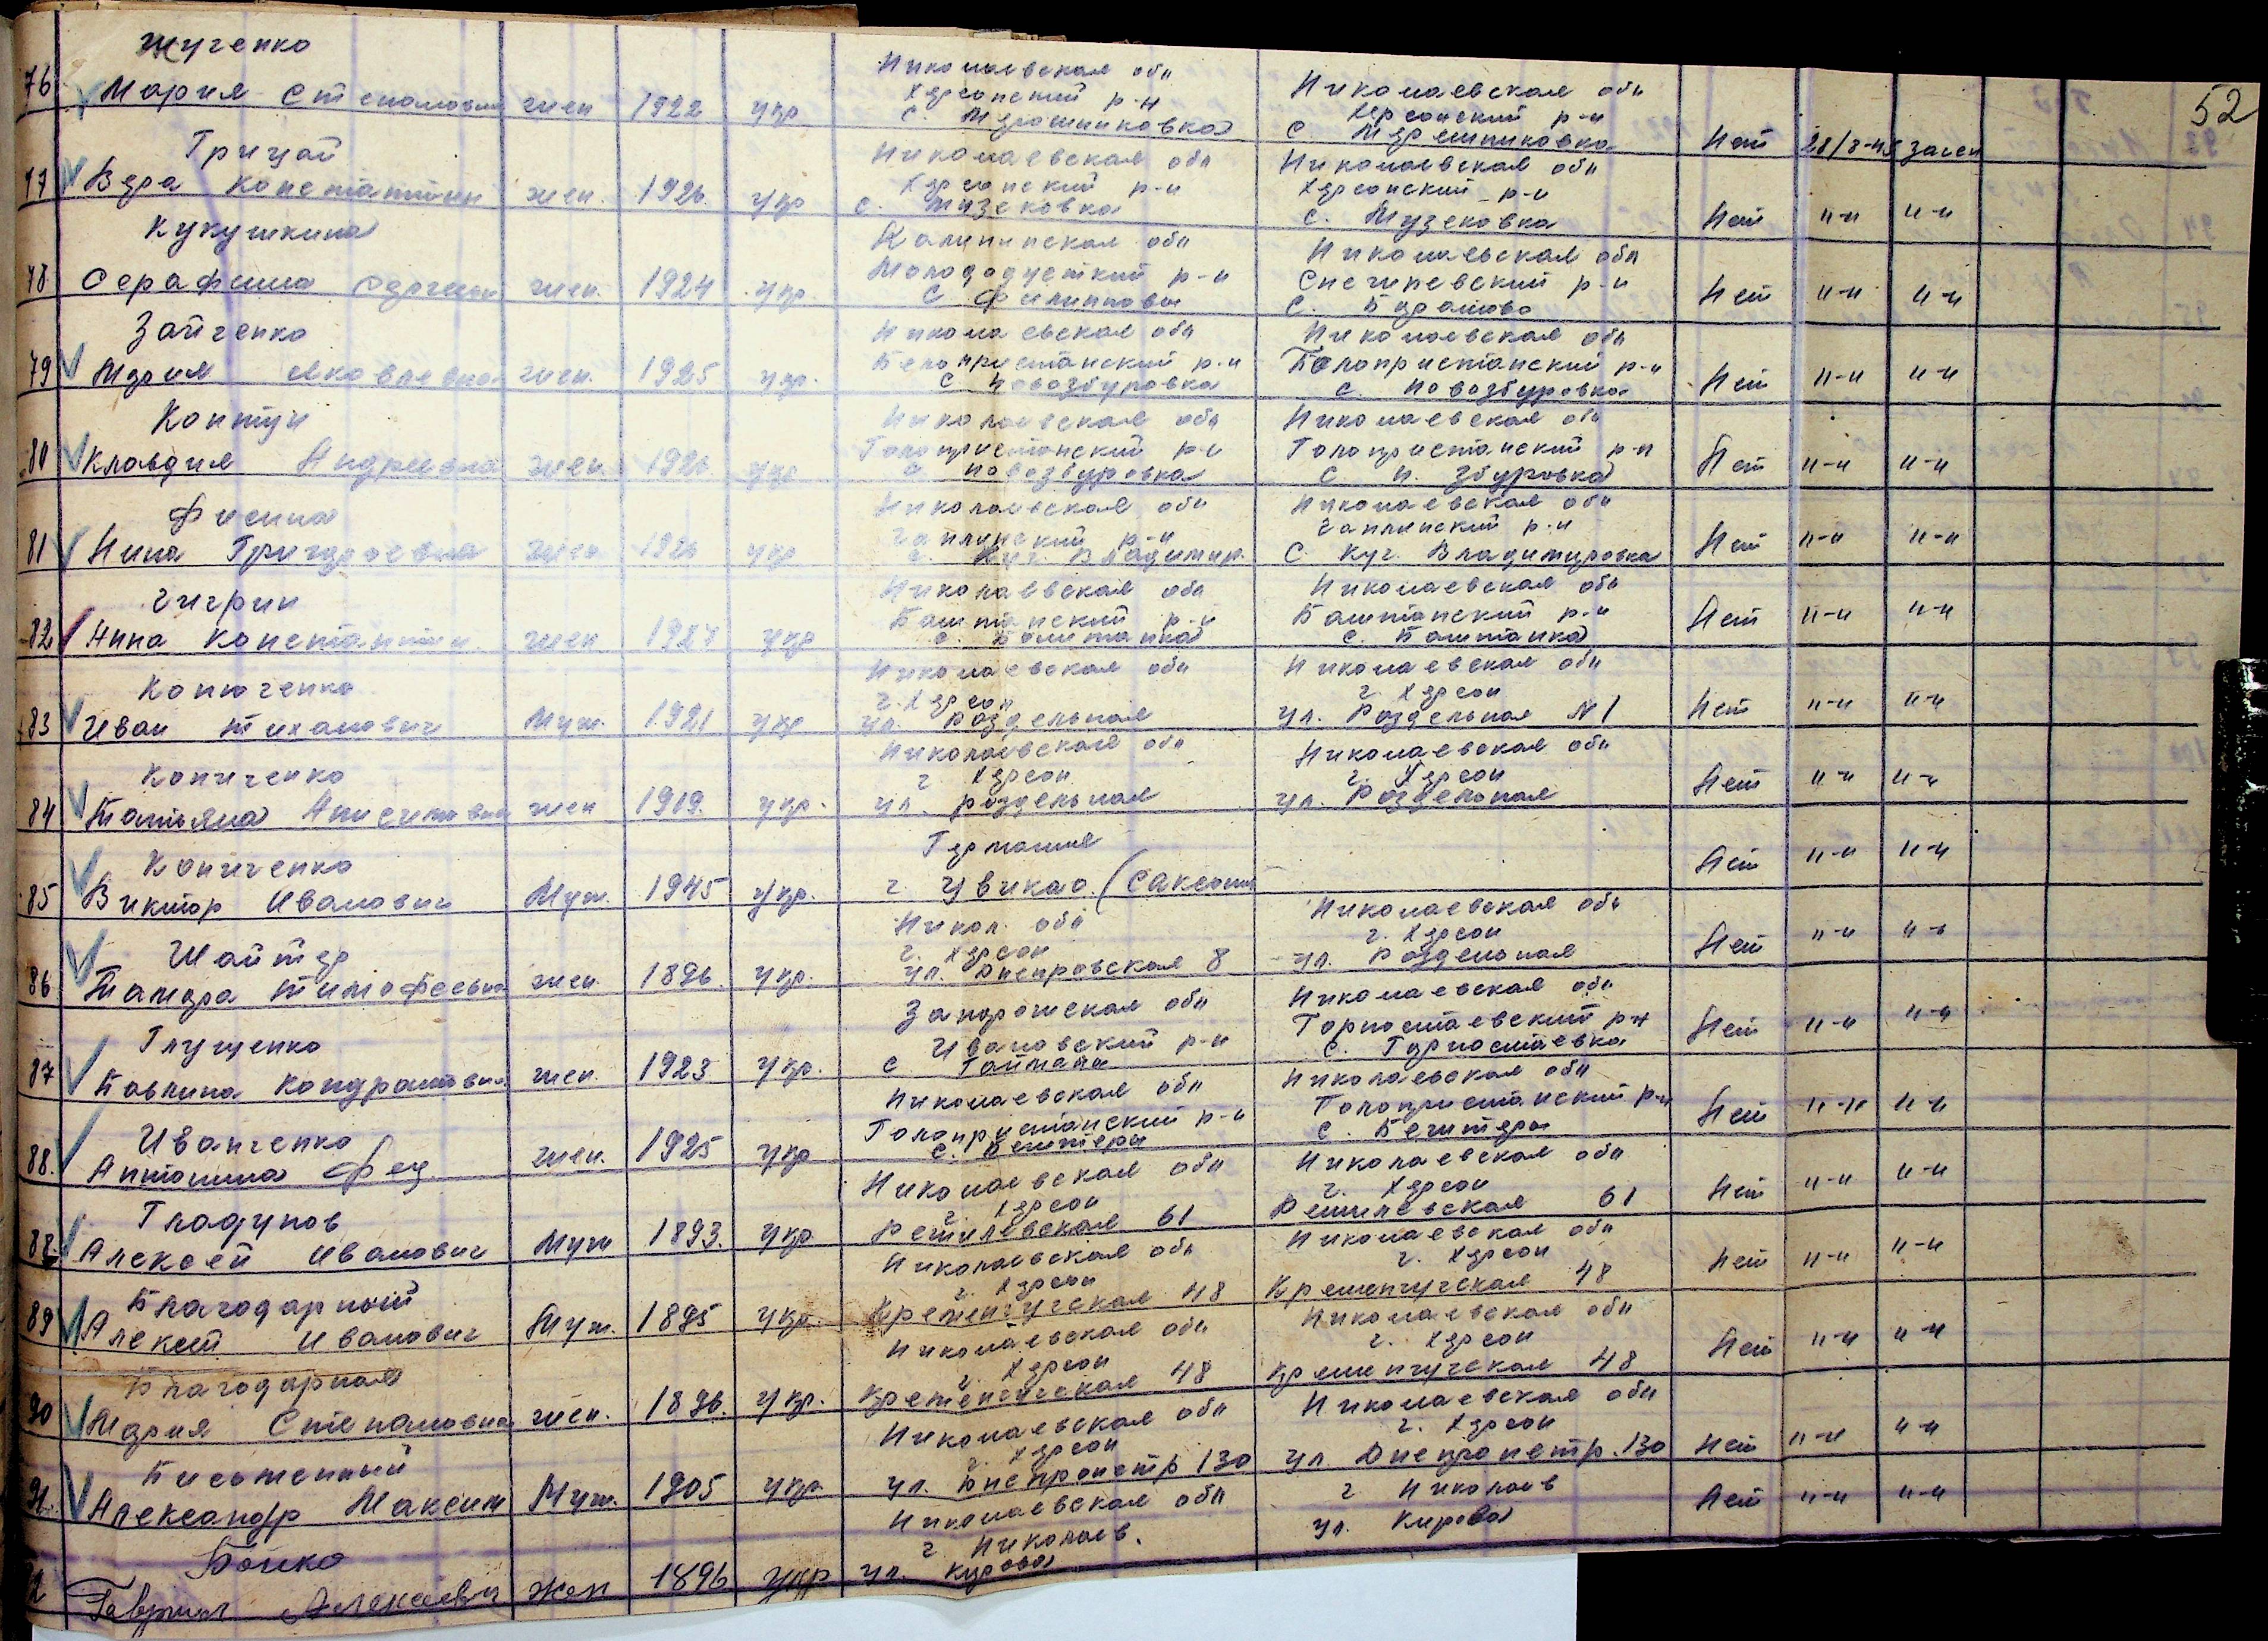 52
Жученко
76 Мария Степановна жен 1922 укр
Николаевская обл
Херсонский р-н
с. Мерошниковка
Николаевская обл
Херсонский р-н
с. Мерошниковка
Нет 28/8-45 зачен
Грицай
77 Вера Константин жен. 1926. укр
Николаевская обл
Херсонский р-н
с. Музековка
Николаевская обл
Херсонский р-н
с. Музековка
Нет "-" "-"
Кукушкина
78 Серафима Сергеев жен. 1924 укр
Калининская обл
Молодотутский р-н
с Филипповы
Николаевская обл
Снегиревский р-н
с. Бурхоново
Нет "-" "-"
Зайченко
79 Мария Яковлевна жен. 1925 укр.
Николаевская обл
Белопристанский р-н
с Новозбуровка
Николаевская обл
Голопристанский р-н
с. Новозбуровка
Нет "-" "-"
Контун
80 Клавдия Андреевна жен. 1926. укр
Николаевская обл
Голопристанский р-н
с Новозбуровка
Николаевская обл
Голопристанский р-н
с. Н. Збуровка
Нет "-" "-"
Фесина
81 Нина Григорьевна жен 1926 укр
Николаевская обл
Чаплинский р-н
с. Куч. Владимир.
Николаевская обл
Чаплинский р-н
с. Куч. Владимировка
Нет "-" "-"
Чигрин
82 Нина Константин. жен 1927 укр
Николаевская обл
Баштанский р-н
с. Баштанка
Николаевская обл
Баштанский р-н
с. Баштанка
Нет "-" "-"
Конюченко
83 Иван Тиханович Муж. 1921 укр
Николаевская обл
г. Херсон
ул. Роздельная
Николаевская обл
г. Херсон
ул. Роздельная N 1
Нет "-" "-"
Кониченко
84 Татьяна Анисимовна жен 1919. укр.
Николаевская обл
г Херсон
ул. роздельная
Николаевская обл
г. Херсон
ул. Роздельная
Нет "-" "-"
Кониченко
85 Виктор Иванович Муж. 1945 укр.
Германия
г. Цвикао. (Саксония
Нет "-" "-"
Шайтер
86 Тамара Тимофеевна жен. 1896. укр.
Никол. обл
г. Херсон
ул. Днепровская 8
Николаевская обл
г. Херсон
ул. Роздельная
Нет "-" "-"
Глущенко
87 Павлина Кондратовна жен. 1923 укр.
Запорожская обл
Ивановский р-н
с Гаймана
Николаевская обл
Горностаевский р-н
с. Горностаевка
Нет "-" "-"
Иванченко
88. Антонина Фед. жен. 1925 укр
Николаевская обл
Голопристанский р-н
с. Бехтеры
Николаевская обл
Голопристанский р-н
с. Бехтеры
Нет "-" "-"
Гладунов
88. Алексей Иванович Муж 1893. укр
Николаевская обл
г. Херсон
Решилевская 61
Николаевская обл
г. Херсон
Решилевская 61
Нет "-" "-"
Благодарный
89 Алексей Иванович Муж. 1895 укр.
Николаевская обл
г. Херсон
Кременчугская 48
Николаевская обл
г. Херсон
Кременчугская 48
Нет "-" "-"
Благодарная
90 Мария Степановна жен. 1896. укр.
Николаевская обл
г. Херсон
Кременчугская 48
Николаевская обл
г. Херсон
Кременчугская 48
Нет "-" "-"
Письменный
91. Александр Максим Муж. 1905 укр
Николаевская обл
г. Херсон
ул. Днепропетр. 130
Николаевская обл
г. Херсон
ул. Днепропетр. 130
Нет "-" "-"
Бойко
Гаврил Алексеевич Жен 1896 укр
Николаевская обл
г Николаев.
ул. Кирова
г Николаев
ул. Кирова
Нет "-" "-"